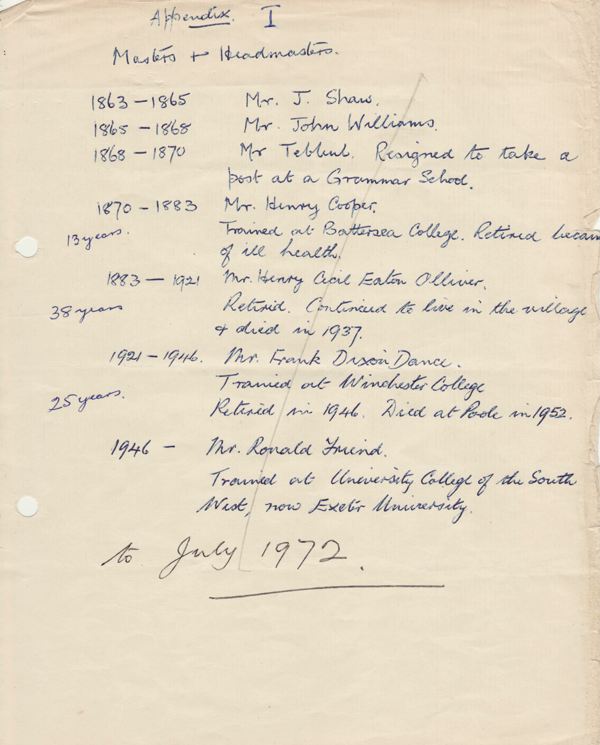 Appendix. I
Masters + Headmasters.
1863 – 1865 Mr. J. Shaw.
1865 – 1868 Mr. John Williams.
1868 – 1870 Mr Tebbut. Resigned to take a
post at a Grammar School.
1870 – 1883 Mr. Henry Cooper.
13 years. Trained at Battersea College. Retired becaus
of ill health.
1883 – 1921 Mr. Henry Cecil Eaton Olliver.
38 years Retired. Continued to live in the village
+ died in 1937.
1921 – 1946. Mr. Frank Dixon Dance.
Trained at Winchester College
25 years. Retired in 1946. Died at Poole in 1952.
1946 – Mr. Ronald Friend.
Trained at University College of the South
West, now Exeter University.
to July 1972.